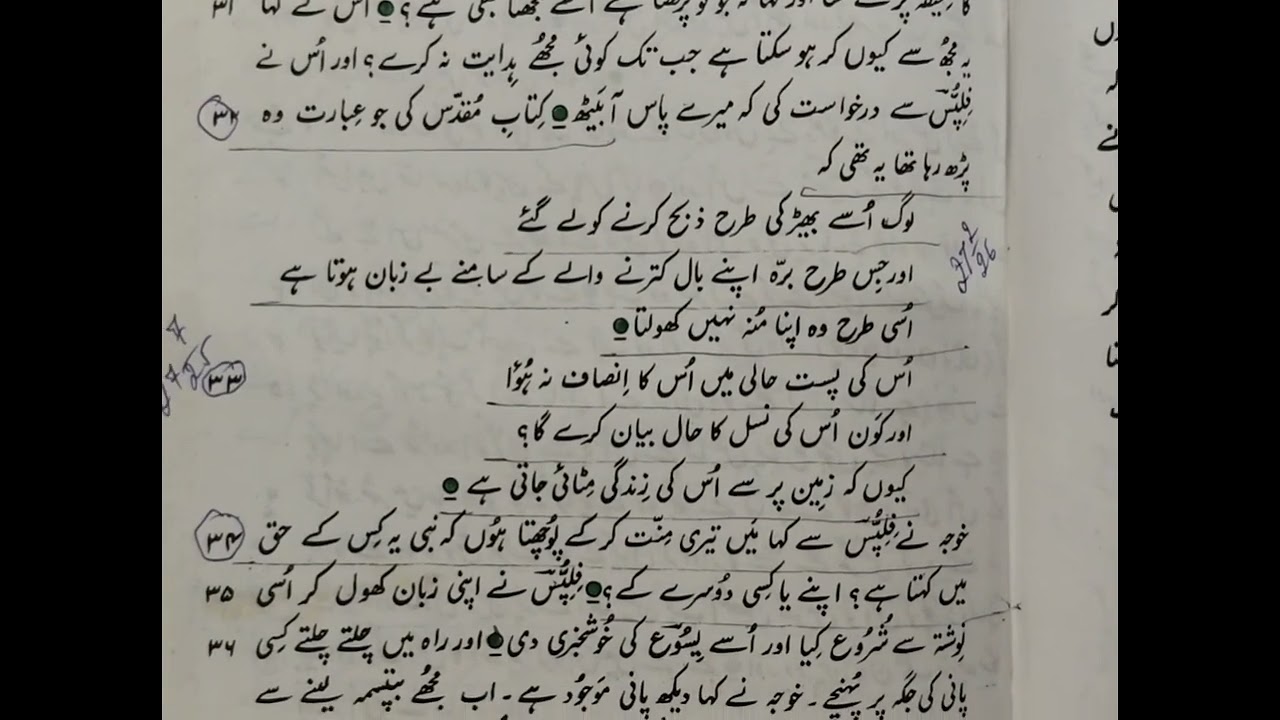 یہ مُجھ سے کیوں کر ہو سکتا ہے جب تک کوئی مُجھے ہِدایت نہ کرے؟ اور اُس نے
فِلِپُّس سے درخواست کی کہ میرے پاس آ بَیٹھ ● کِتابِ مُقدّس کی جو عِبارت وہ ۳۲
پڑھ رہا تھا یہ تھی کہ
لوگ اُسے بھیڑ کی طرح ذبح کرنے کو لے گئے
اور جِس طرح برّہ اپنے بال کترنے والے کے سامنے بے زبان ہوتا ہے
اُسی طرح وہ اپنا مُنہ نہیں کھولتا ●
اُس کی پست حالی میں اُس کا اِنصاف نہ ہُوٴا ۳۳
اور کَون اُس کی نسل کا حال بیان کرے گا؟
کیوں کہ زمِین پر سے اُس کی زِندگی مِٹائی جاتی ہے ●
خوجہ نے فِلِپُّس سے کہا مَیں تیری مِنّت کر کے پُوچھتا ہُوں کہ نبی یہ کِس کے حق ۳۴
میں کہتا ہے؟ اپنے یا کِسی دُوسرے کے؟ ● فِلِپُّس نے اپنی زبان کھول کر اُسی ۳۵
نوِشتہ سے شُرُوع کِیا اور اُسے یِسُوع کی خُوشخبری دی ● اور راہ میں چلتے چلتے کِسی ۳۶
پانی کی جگہ پر پُہنچے۔ خوجہ نے کہا دیکھ پانی مَوجُود ہے۔ اب مُجھے بپتِسمہ لینے سے